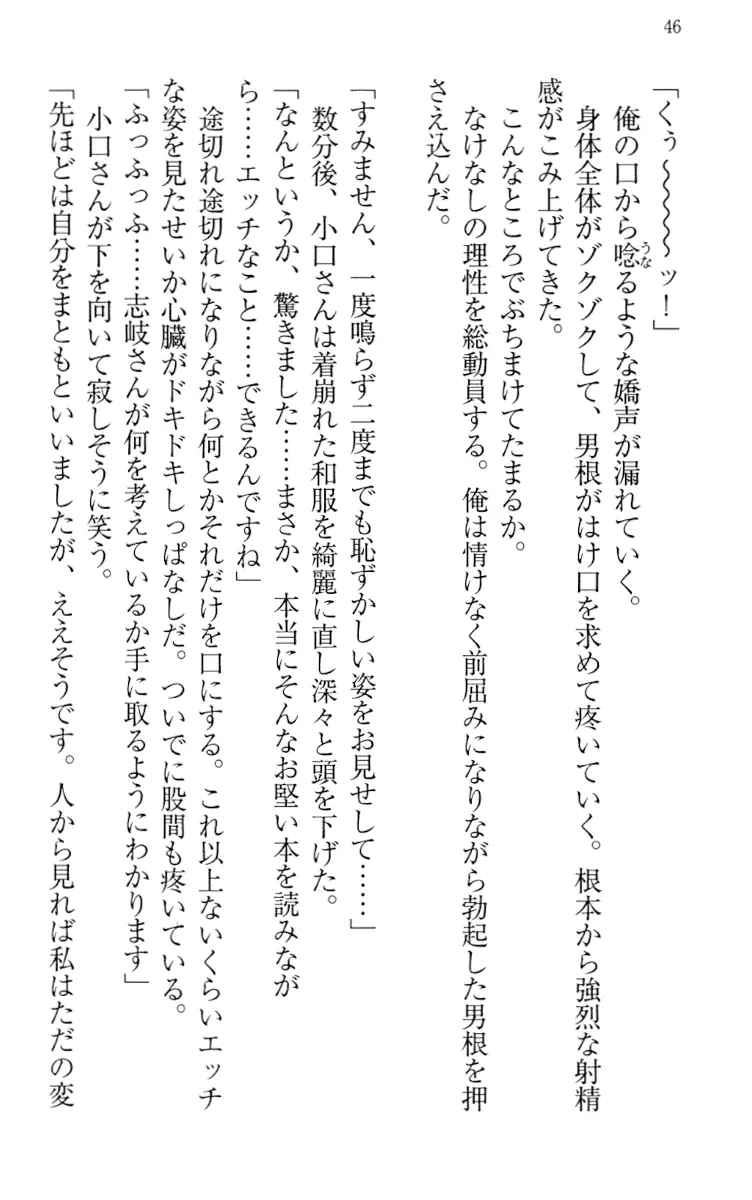 46
「くぅ～～～～～ッ！」
　俺の口から唸るような嬌声が漏れていく。
　身体全体がゾクゾクして、男根がはけ口を求めて疼いていく。根本から強烈な射精
感がこみ上げてきた。
　こんなところでぶちまけてたまるか。
　なけなしの理性を総動員する。俺は情けなく前屈みになりながら勃起した男根を押
さえ込んだ。
「すみません、一度鳴らず二度までも恥ずかしい姿をお見せして……」
　数分後、小口さんは着崩れた和服を綺麗に直し深々と頭を下げた。
「なんというか、驚きました……まさか、本当にそんなお堅い本を読みなが
ら……エッチなこと……できるんですね」
　途切れ途切れになりながら何とかそれだけを口にする。これ以上ないくらいエッチ
な姿を見たせいか心臓がドキドキしっぱなしだ。ついでに股間も疼いている。
「ふっふっふ……志岐さんが何を考えているか手に取るようにわかります」
　小口さんが下を向いて寂しそうに笑う。
「先ほどは自分をまともといいましたが、ええそうです。人から見れば私はただの変